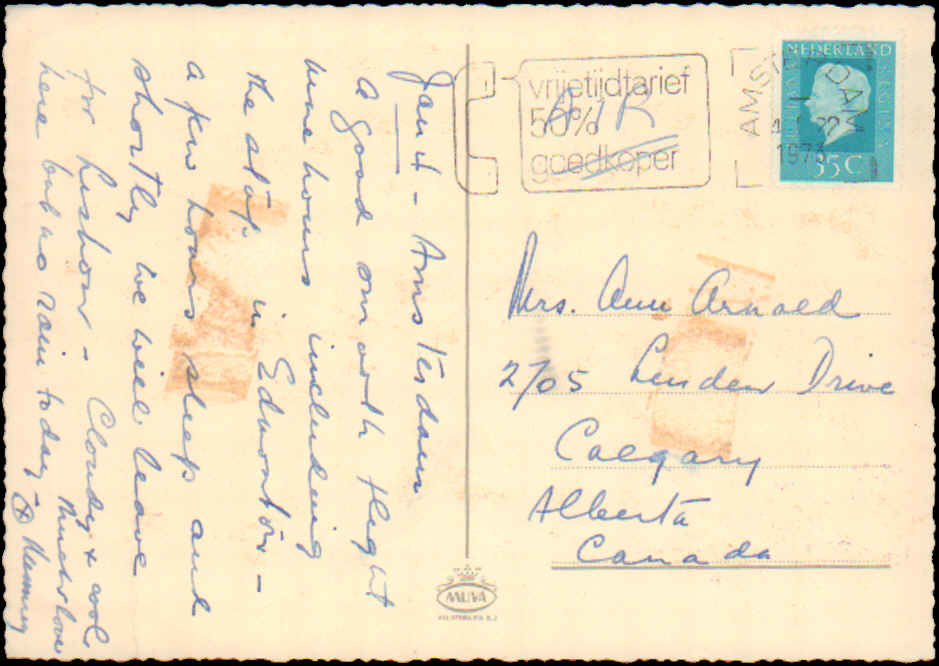 Jan 4 - Amsterdam
A good smooth flight
nine hours including
the stop in Edmonton -
a few hours sleep and
shortly we will leave
for Lisbon - Cloudy & cool
here but no rain today -
Much love
Mummy
vrijetijdtarief
50%
goedkoper
AIR
AMSTERDAM
1973
NEDERLAND
55C
Mrs. Ann Arnold
2705 Linden Drive
Calgary
Alberta
Canada
MUVA